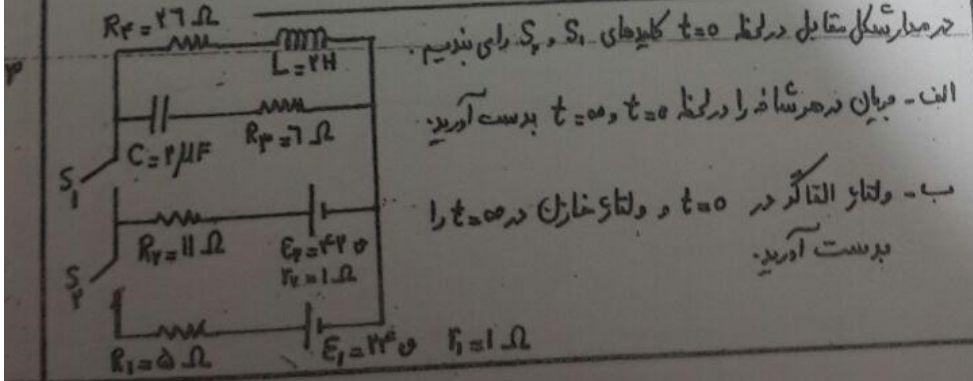 ۳
در مدار شکل مقابل در لحظه t=0 کلیدهای S₁ و S₂ را می بندیم.
الف - جریان در هر شاخه را در لحظه t=0 و t=∞ بدست آورید.
ب - ولتاژ القاگر در t=0 و ولتاژ خازن در t=∞ را
بدست آورید.
R۴=۲۶Ω
L=۲H
C=۲μF
R۳=۶Ω
S₁
R۲=۱۱Ω
ε۲=۴۲υ
r۲=۱Ω
S۲
R₁=۵Ω
ε₁=۲۴υ r₁=۱Ω